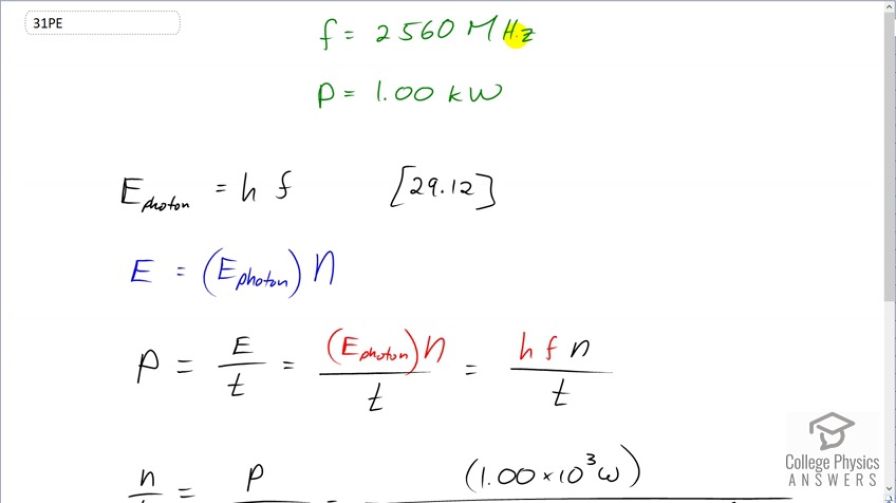 31PE
f = 2560 MHz
P = 1.00 kW
E_photon = h f [29.12]
E = (E_photon) n
P = E/t = (E_photon) n / t = h f n / t
n = P = (1.00 × 10³ W)
College Physics
ANSWERS